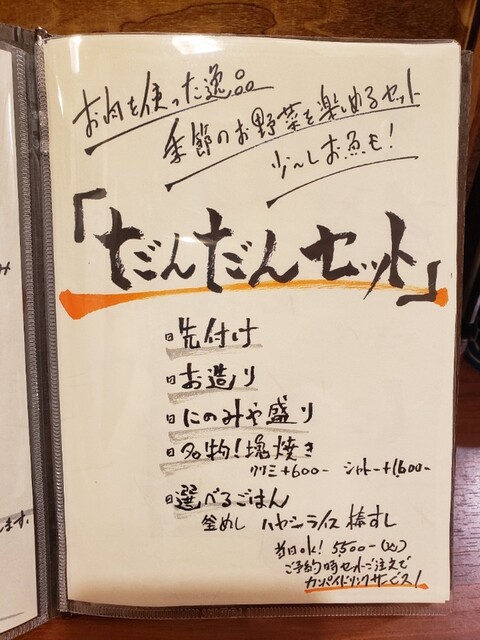 お肉を使った逸品
季節のお野菜を楽しめるセット
少〜しお魚も!
「だんだんセット」
先付け
お造り
にのみや盛り
名物!塊焼き
クリミ+600- シャトー+1,600-
選べるごはん
釜めし ハヤシライス 棒すし
当日ok! 5,500-(込)
ご予約時セットご注文で
カンパイドリンクサービス!
み
します。